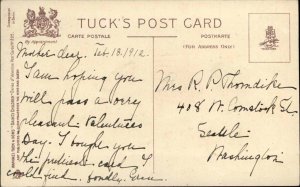 TUCK'S POST CARD
CARTE POSTALE
POSTKARTE
(FOR ADDRESS ONLY)
By Appointment
Mother dear, Feb. 18, 1912.
I am hoping you
will pass a very
pleasant Valentines
Day. I bought you
the prettiest card I
could find. Fondly,
Mrs R. P. Thorndike
408 W. Comstock St
Seattle
Washington